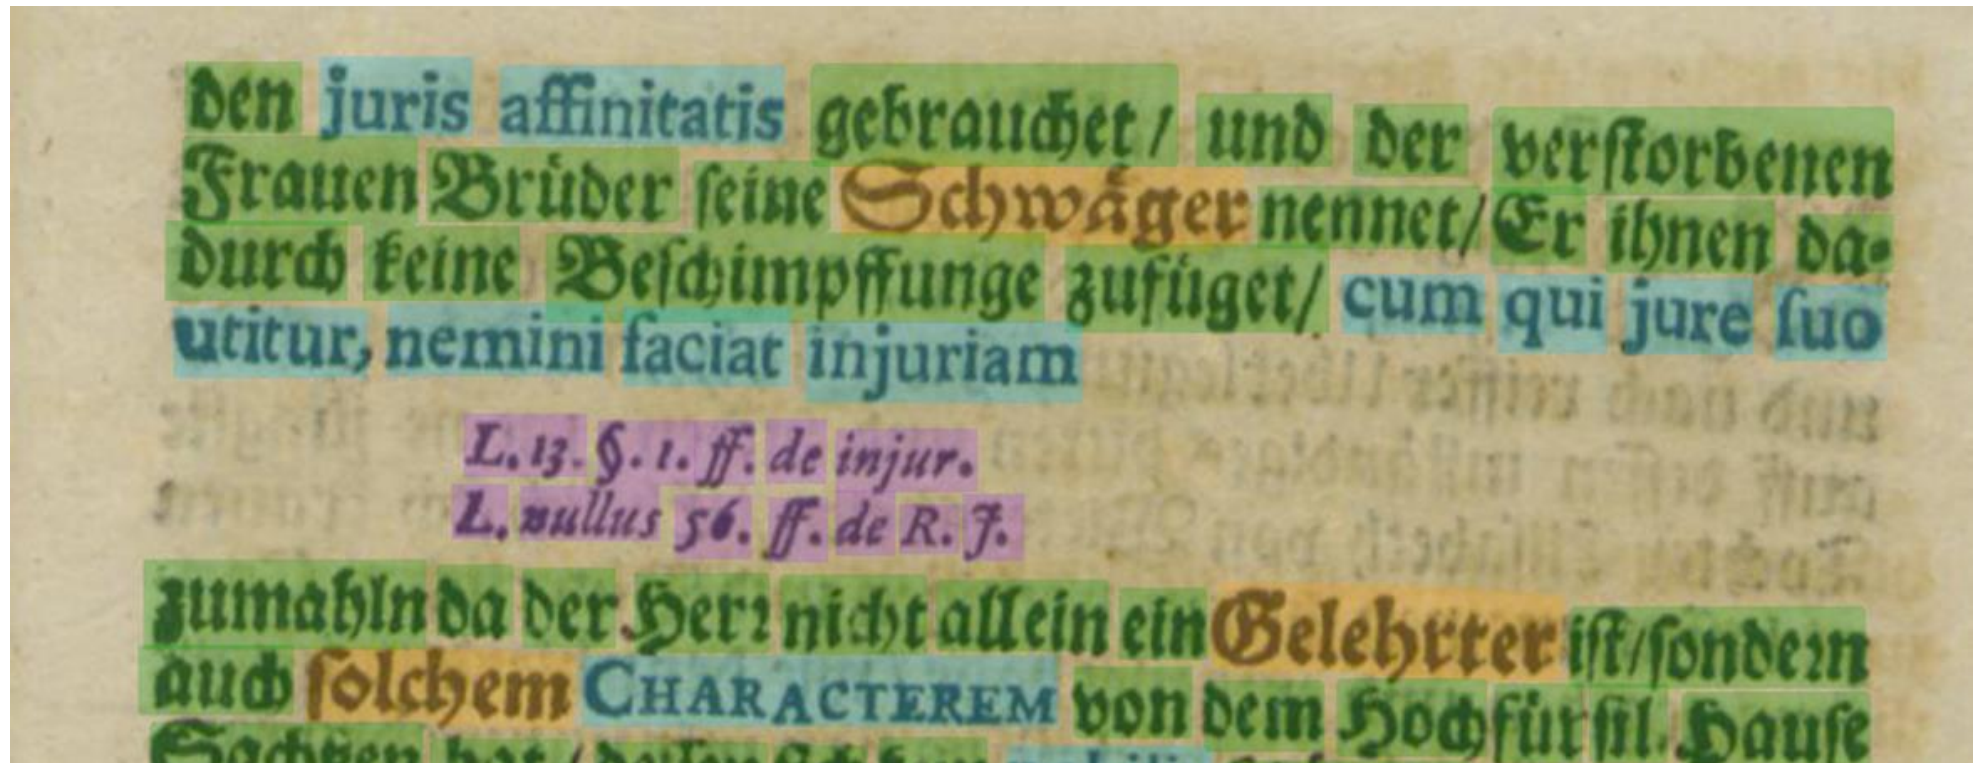 den juris affinitatis gebrauchet / und der verstorbenen
Frauen Brüder seine Schwäger nennet/ Er ihnen da-
durch keine Beschimpffunge zufüget/ cum qui jure suo
utitur, nemini faciat injuriam
L. 13. §. 1. ff. de injur.
L. nullus 56. ff. de R. J.
zumahln da der Herr nicht allein ein Gelehrter ist/ sondern
auch solchem CHARACTEREM von dem Hochfürstl. Hause
Sachsen hat /